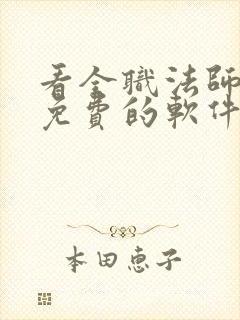 看全職法師
免費的軟件
本田惠子